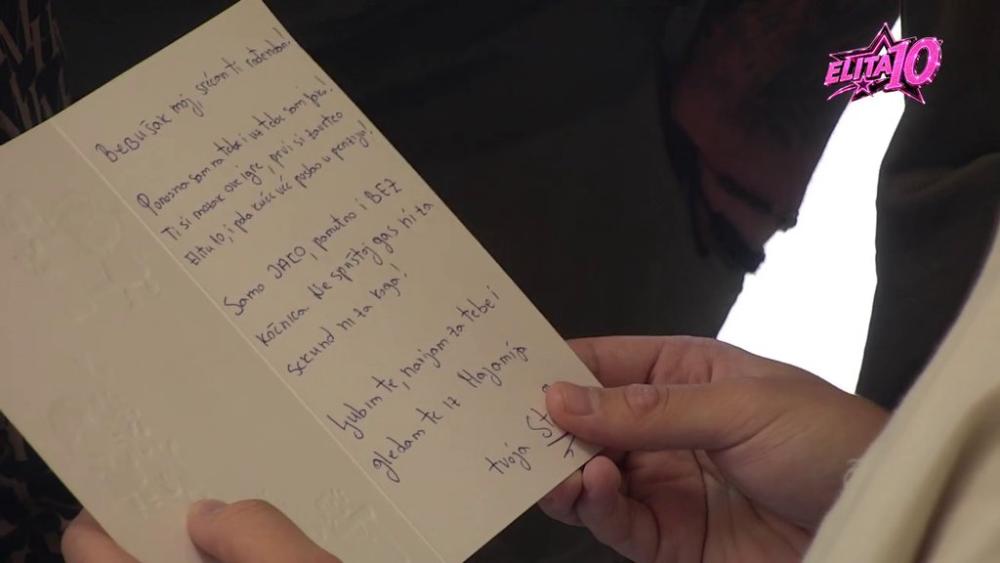 ELITA 10
BEBUŠAK moj, srećan ti rođendan!
Ponosna sam na tebe i uz tebe sam jako!
Ti si motor ove igre, prvi si zavrteo
Elitu 10, i pola kuće već poslao u penziju!
Samo JAKO, pametno i BEZ
kočnica. Ne spuštaj gas ni za
sekund ni za koga!
Ljubim te, navijam za tebe i
gledam te iz Majamija
tvoja